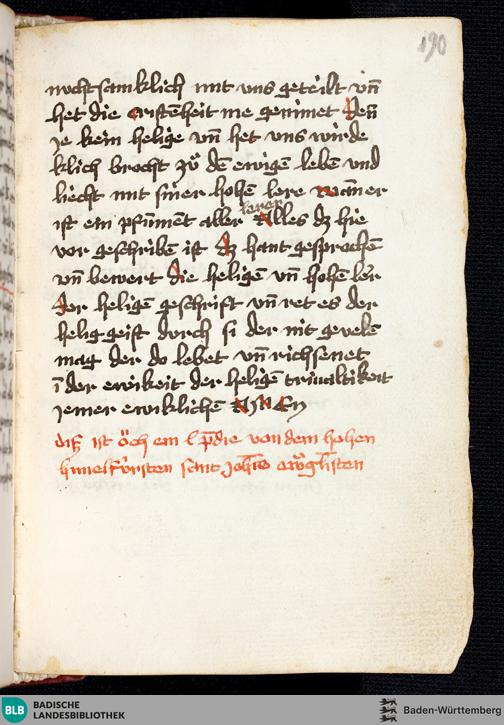 190
nvchtsamklich mit vns geteilt vn̄
het die cristēheit me gemmet Den̄
ie kein helige vn̄ het vns wirde
klich brocht zů dē ewigē leben vnd
liecht mit siner hohē lere wan̄er
ist ein pfūmēt aller lerer Alles dz hie
vor geschribē ist Dz hant gesprochē
vn̄ bewert die heligē vn̄ hohē ler̄
Der heligē geschrift vn̄ ret es der
helig geist durch si der nit gevelē
mag der do lebet vn̄ richsenet
ī der ewikeit der heligē trinaltikeit
iemer ewklichē AMEN
diß ist öch ein p̄die von dem hohen
himelfürsten sant Joh̄o
BLB BADISCHE
LANDESBIBLIOTHEK
Baden-Württemberg